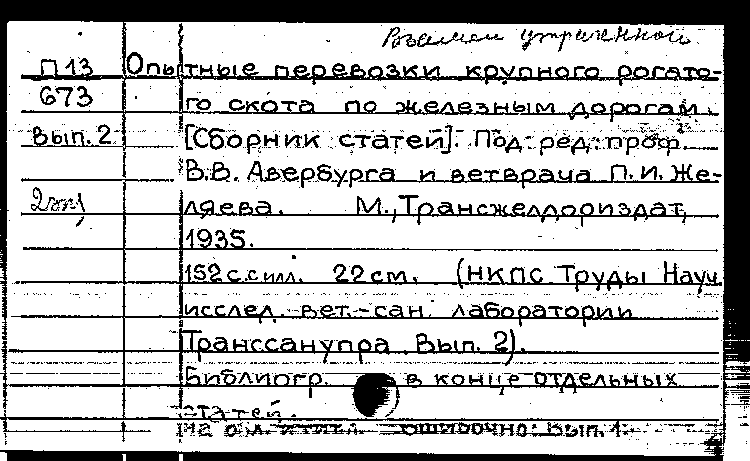 Взамен утраченной
П13 Опытные перевозки крупного рогато-
673 го скота по железным дорогам.
Вып. 2 [Сборник статей]. Под. ред. проф.
В.В. Авербурга и ветврача П.И. Же-
ляева. М., Трансжелдориздат,
1935.
152 с. с илл. 22 см. (НКПС Труды Науч.
исслед. вет.-сан. лаборатории
Транссанупра. Вып. 2).
Библиогр. в конце отдельных
статей.
на ошибочно: вып. 1.